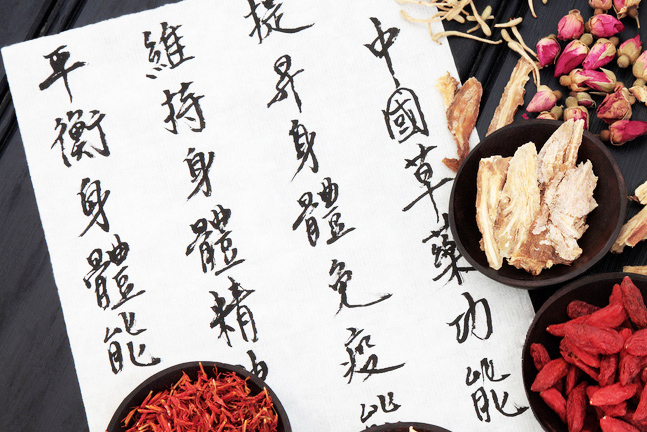 中國草藥功能
提昇身體免疫能
維持身體精神
平衡身體能